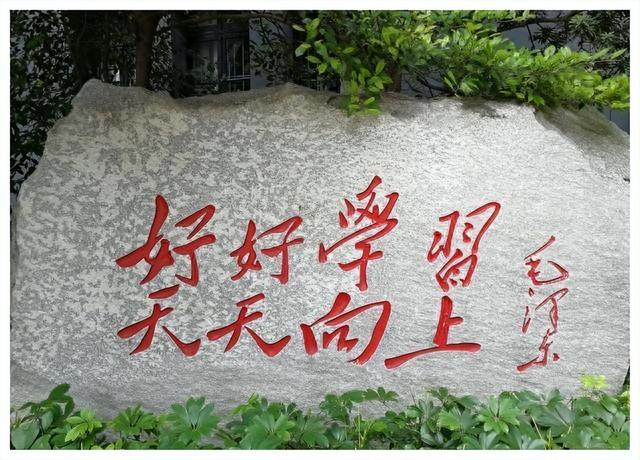 好好學習
天天向上
毛泽东